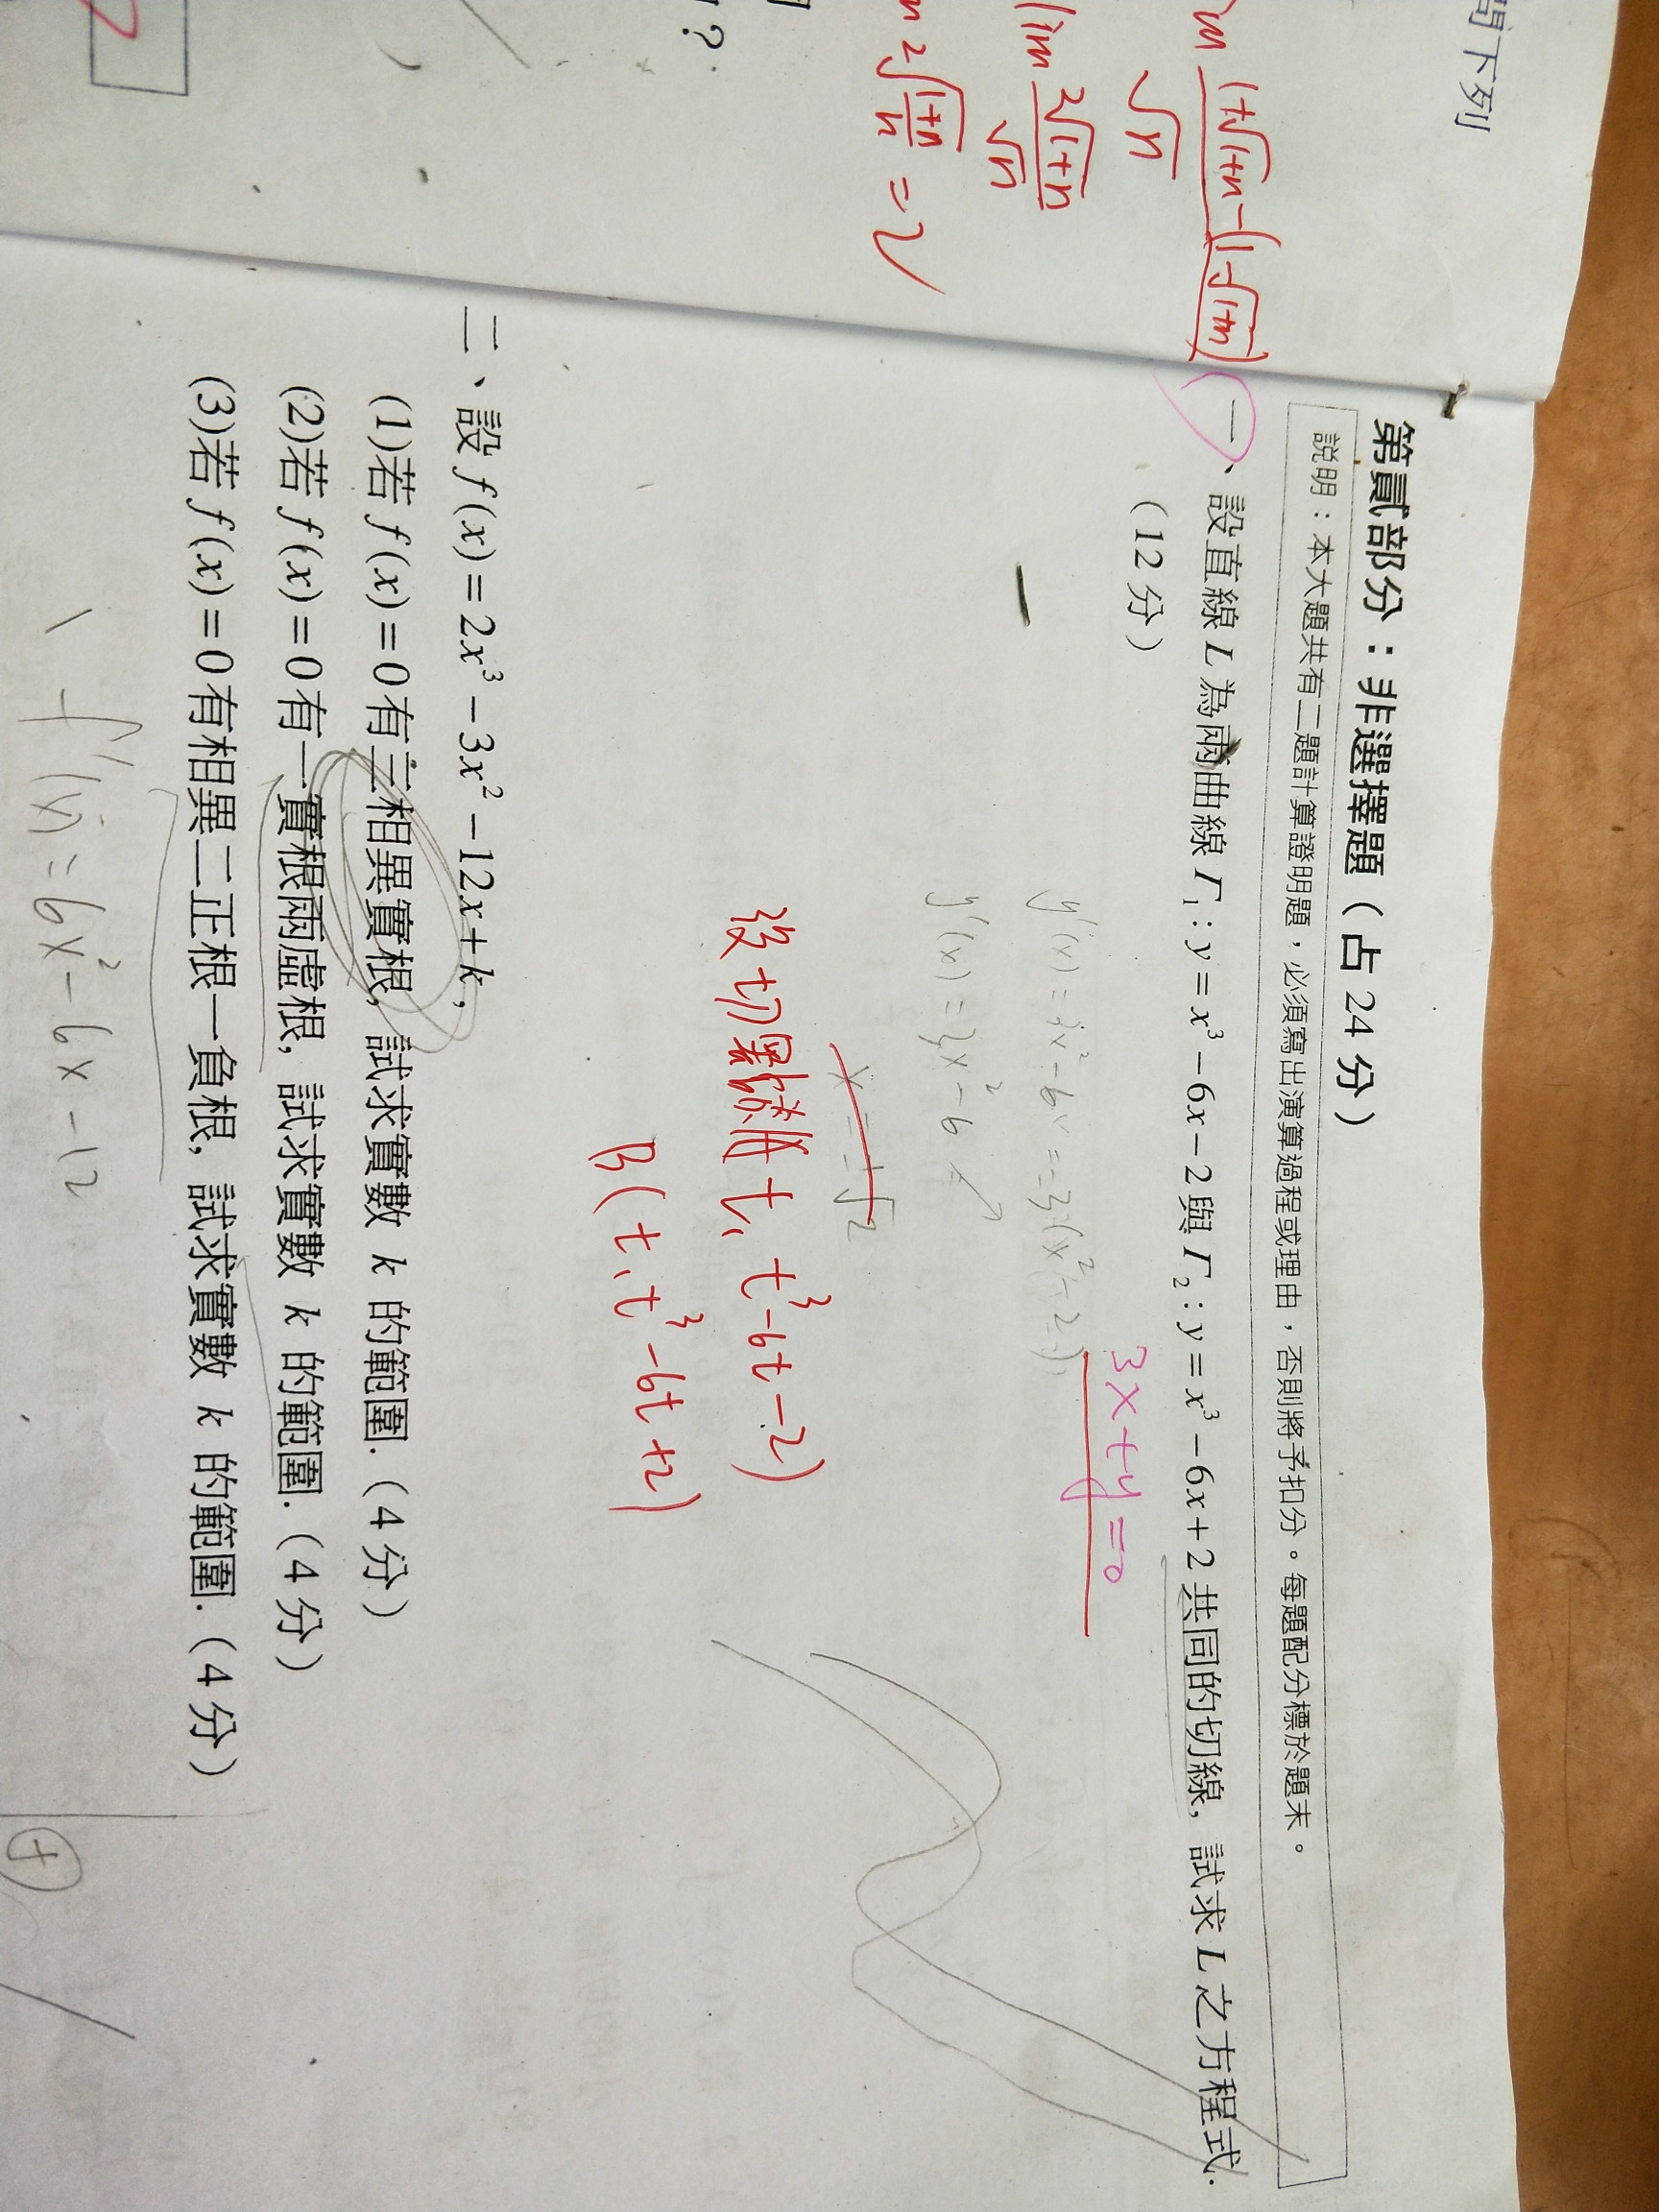 問下列
(1+√(1+n) -(1-√(1+n))
√n
lim 2√(1+n)
√n
2√((1+n)/n) = 2
?
第貳部分：非選擇題（占 24 分）
說明：本大題共有二題計算證明題，必須寫出演算過程或理由，否則將予扣分。每題配分標於題末。
一、設直線 L 為兩曲線 Γ₁ : y = x³ − 6x − 2 與 Γ₂ : y = x³ − 6x + 2 共同的切線, 試求 L 之方程式.
（12 分）
3x+y=0
y'(x) = 3x² - 6
x = ±√2
設切點
t, t³-6t-2)
B(t, t³-6t+2)
二、設 f (x) = 2x³ − 3x² − 12x + k ,
(1)若 f (x) = 0 有三相異實根, 試求實數 k 的範圍.（4 分）
(2)若 f (x) = 0 有一實根兩虛根, 試求實數 k 的範圍.（4 分）
(3)若 f (x) = 0 有相異二正根一負根, 試求實數 k 的範圍.（4 分）
f'(x) = 6x² - 6x - 12
+